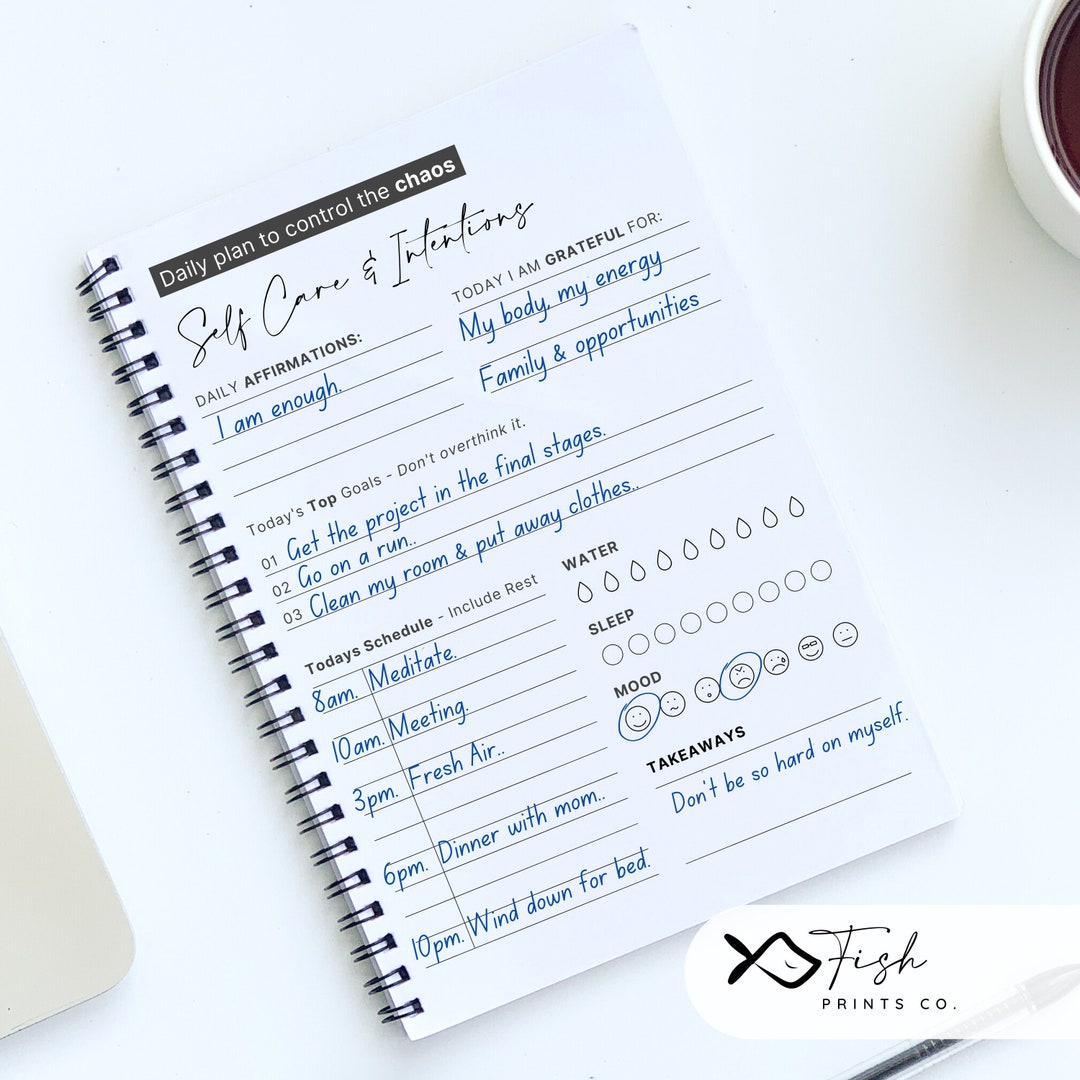 Daily plan to control the chaos
Self Care & Intentions
DAILY AFFIRMATIONS:
I am enough.
TODAY I AM GRATEFUL FOR:
My body, my energy
Family & opportunities
Today's Top Goals - Don't overthink it.
01 Get the project in the final stages.
02 Go on a run..
03 Clean my room & put away clothes..
Todays Schedule - Include Rest
8am. Meditate.
10am. Meeting.
3pm. Fresh Air..
6pm. Dinner with mom..
10pm. Wind down for bed.
WATER
SLEEP
MOOD
TAKEAWAYS
Don't be so hard on myself.
Fish
PRINTS CO.